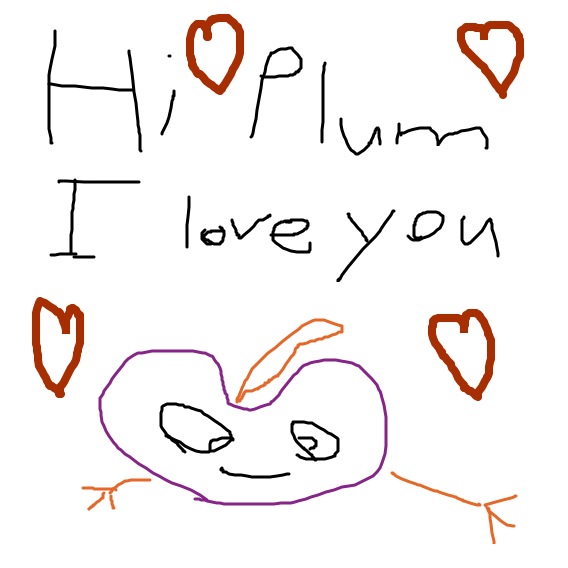 Hi Plum
I love you